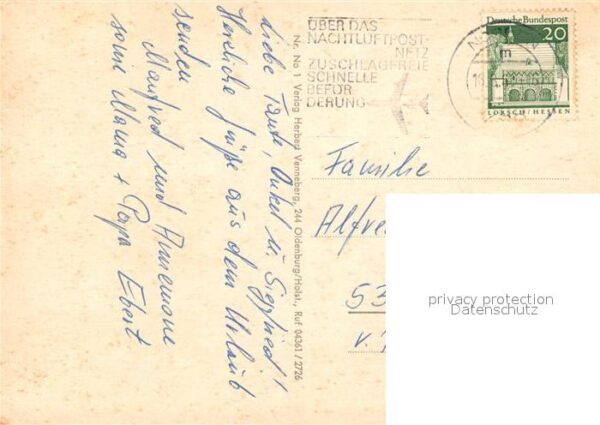 Liebe Tante, Onkel u. Siegfried!
Herzliche Grüße aus dem Urlaub
senden
Manfred und Annemone
sowie Mama + Papa Ebert
Nr. No 1 Verlag Herbert Venneberg, 244 Oldenburg/Holst., Ruf 04361/2726
ÜBER DAS
NACHTLUFTPOST-
NETZ
ZUSCHLAGFREIE
SCHNELLE
BEFÖR
DERUNG
m
Deutsche Bundespost
20
LORSCH/HESSEN
Familie
Alfre
53
V.
privacy protection
Datenschutz